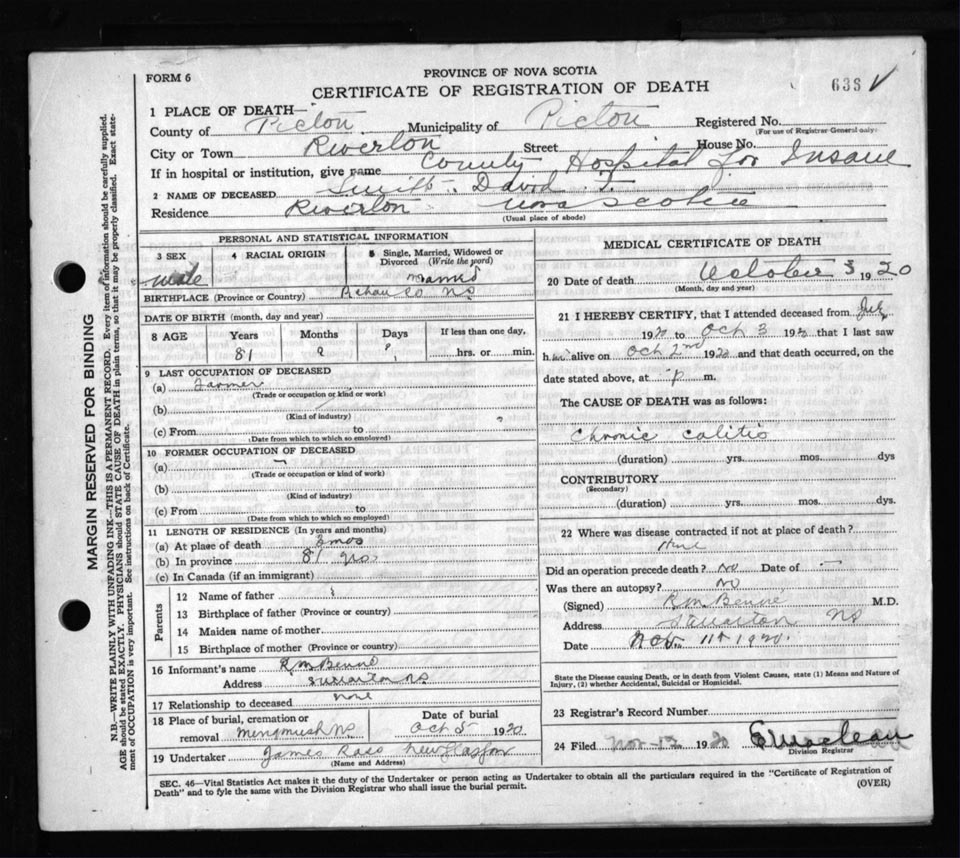 FORM 6
PROVINCE OF NOVA SCOTIA
CERTIFICATE OF REGISTRATION OF DEATH
63
1 PLACE OF DEATH—
County of Pictou Municipality of Pictou Registered No.
(For use of Registrar General only)
City or Town Riverton Street House No.
If in hospital or institution, give name County Hospital for Insane
2 NAME OF DECEASED David
Residence Riverton Nova Scotia
(Usual place of abode)
PERSONAL AND STATISTICAL INFORMATION
3 SEX 4 RACIAL ORIGIN 5 Single, Married, Widowed or Divorced (Write the word)
Male Married
BIRTHPLACE (Province or Country) Co NS
DATE OF BIRTH (month, day and year)
8 AGE Years Months Days If less than one day,
81 ? ? hrs. or min.
9 LAST OCCUPATION OF DECEASED
(a) Farmer
(Trade or occupation or kind or work)
(b)
(Kind of industry)
(c) From to
(Date from which to which so employed)
10 FORMER OCCUPATION OF DECEASED
(a)
(Trade or occupation or kind of work)
(b)
(Kind of industry)
(c) From to
(Date from which to which so employed)
11 LENGTH OF RESIDENCE (In years and months)
(a) At place of death 3 mos
(b) In province 81 yrs
(c) In Canada (if an immigrant)
Parents
12 Name of father
13 Birthplace of father (Province or country)
14 Maiden name of mother
15 Birthplace of mother (Province or country)
16 Informant's name R M Benvie
Address Stellarton NS
17 Relationship to deceased none
18 Place of burial, cremation or removal NS Date of burial Oct 5 1920
19 Undertaker James New Glasgow
(Name and Address)
MEDICAL CERTIFICATE OF DEATH
20 Date of death October 3 1920
(Month, day and year)
21 I HEREBY CERTIFY, that I attended deceased from July
1920 to Oct 3 1920 that I last saw
him alive on Oct 2nd 1920 and that death occurred, on the
date stated above, at p m.
The CAUSE OF DEATH was as follows:
Chronic Colitis
(duration) yrs. mos. dys
CONTRIBUTORY
(Secondary)
(duration) yrs. mos. dys.
22 Where was disease contracted if not at place of death?
Did an operation precede death? No Date of —
Was there an autopsy? No
(Signed) R M Benvie M.D.
Address Stellarton NS
Date Nov. 11th 1920.
State the Disease causing Death, or in death from Violent Causes, state (1) Means and Nature of Injury, (2) whether Accidental, Suicidal or Homicidal.
23 Registrar's Record Number
24 Filed Nov 12 1920 Maclean
Division Registrar
SEC. 46—Vital Statistics Act makes it the duty of the Undertaker or person acting as Undertaker to obtain all the particulars required in the "Certificate of Registration of
Death" and to fyle the same with the Division Registrar who shall issue the burial permit. (OVER)
MARGIN RESERVED FOR BINDING
N.B.—WRITE PLAINLY WITH UNFADING INK—THIS IS A PERMANENT RECORD. Every item of information should be carefully supplied.
AGE should be stated EXACTLY. PHYSICIANS should STATE CAUSE OF DEATH in plain terms, so that it may be properly classified. Exact statement of OCCUPATION is very important. See instructions on back of Certificate.